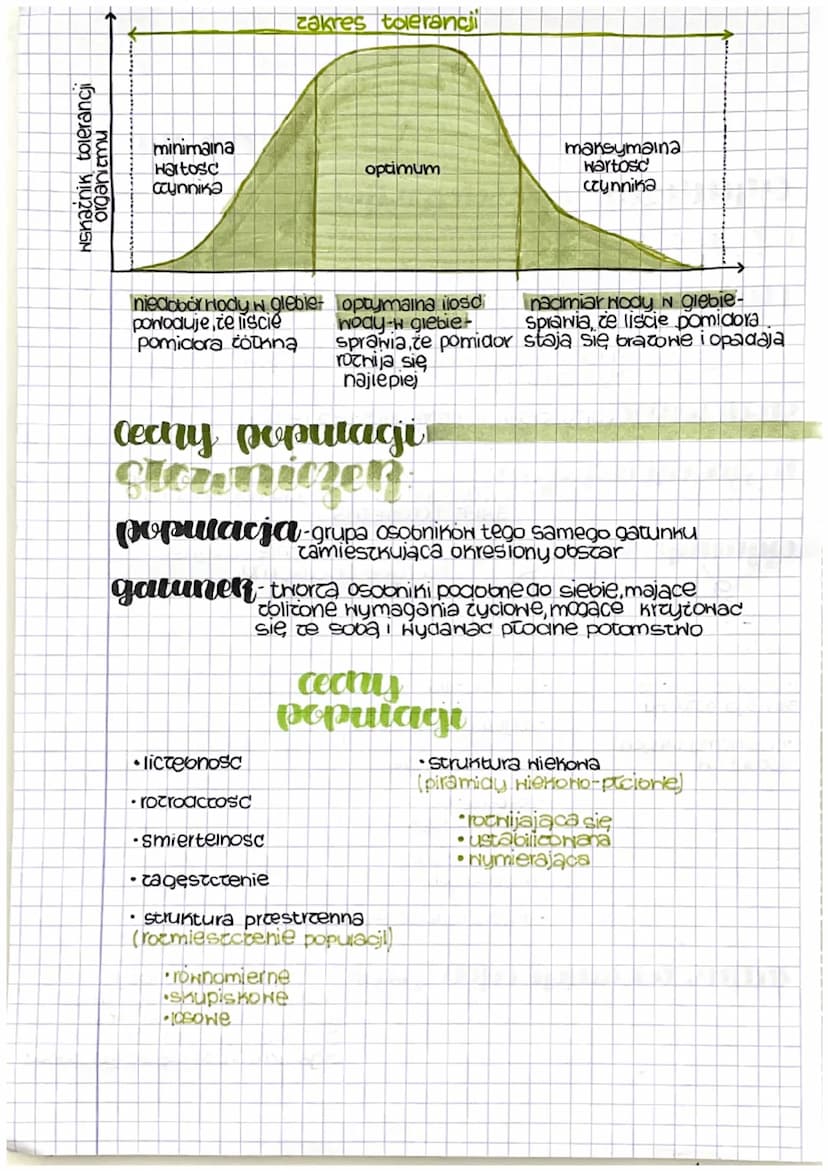 zakres tolerancji
wskaźnik tolerancji
organizmu
minimalna
wartość
czynnika
optimum
maksymalna
wartość
czynnika
niedobór wody w glebie-
powoduje, że liście
pomidora żółkną
optymalna ilość
wody w glebie-
sprawia, że pomidor
rozwija się
najlepiej
nadmiar wody w glebie-
sprawia, że liście pomidora
stają się brązowe i opadają
cechy populacji
słowniczek:
populacja - grupa osobników tego samego gatunku
zamieszkująca określony obszar
gatunek - tworzą osobniki podobne do siebie, mające
zbliżone wymagania życiowe, mogące krzyżować
się ze sobą i wydawać płodne potomstwo
cechy
populacji
• liczebność
• rozrodczość
• śmiertelność
• zagęszczenie
• struktura przestrzenna
(rozmieszczenie populacji)
• równomierne
• skupiskowe
• losowe
• struktura wiekowa
(piramidy wiekowo-płciowe)
• rozwijająca się
• ustabilizowana
• wymierająca